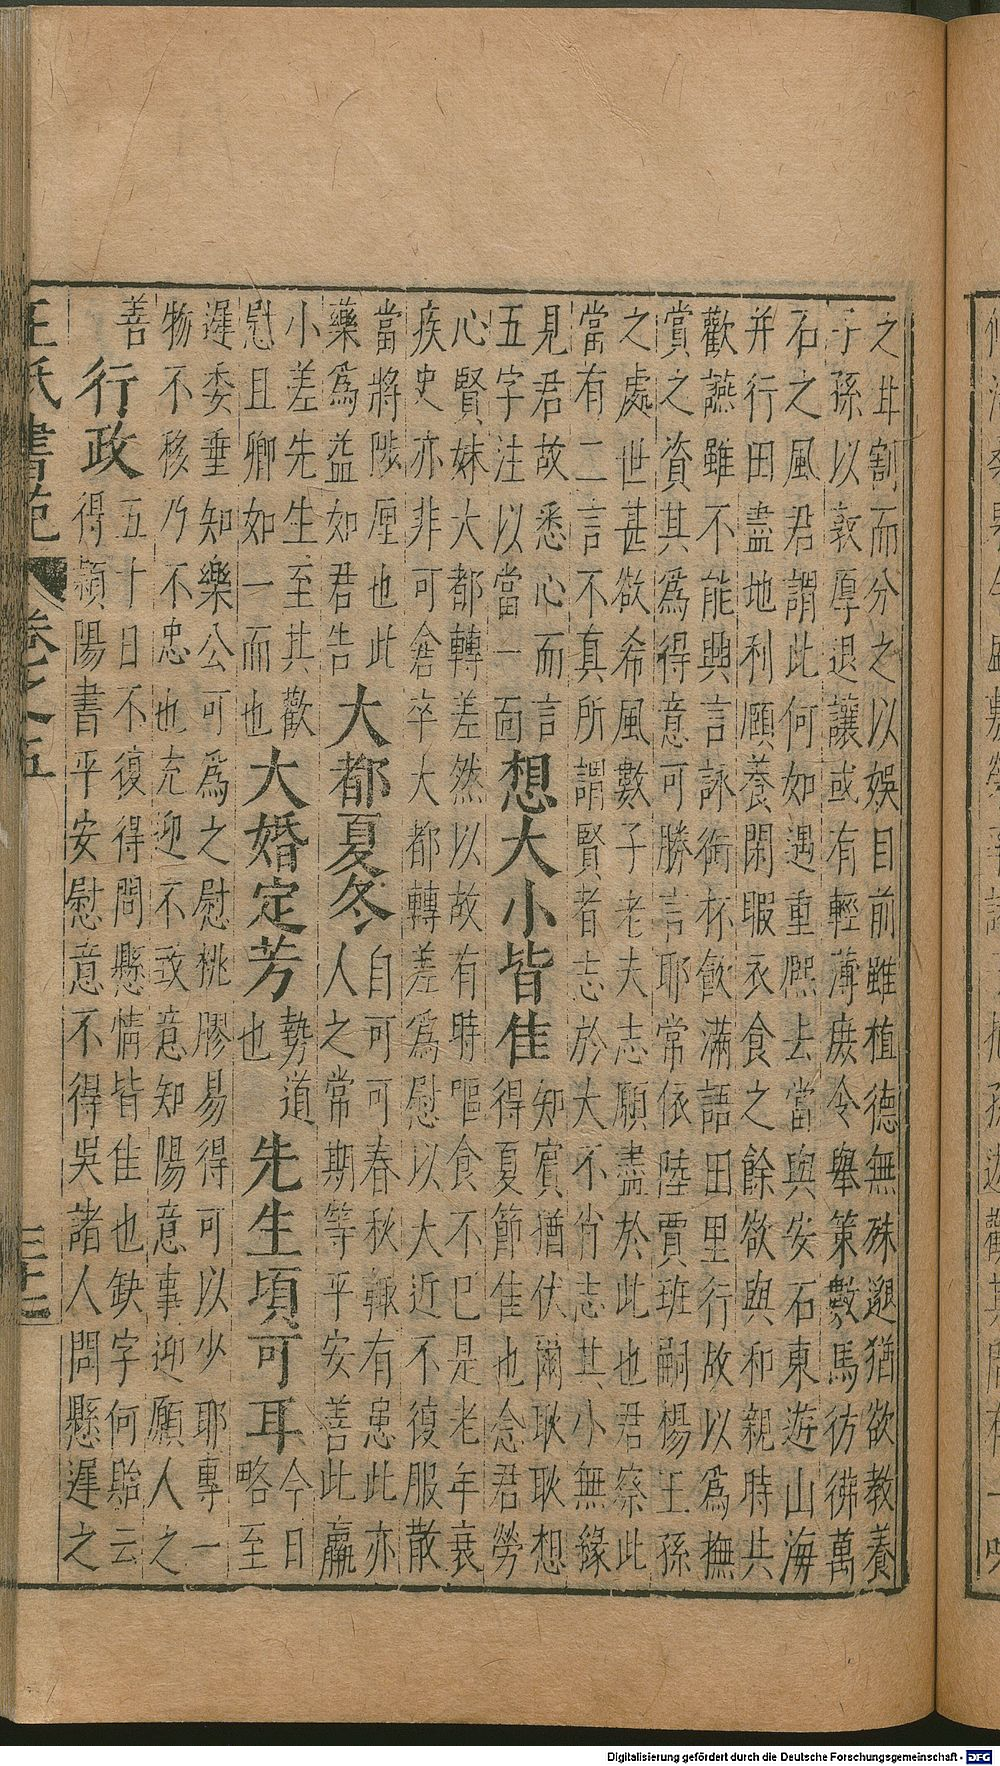 之甘割而分之以娛目前雖植德無殊邈猶欲教養
子孫以敦厚退讓或有輕薄庶令舉策數馬彷彿萬
石之風君謂此何如遇重熙去當與安石東遊山海
并行田盡地利頤養閑暇衣食之餘欲與和親時共
歡讌雖不能興言詠銜杯飲滿語田里行故以為撫
賞之資其為得意可勝言耶常依陸賈班嗣楊王孫
之處世甚欲希風數子老夫志願盡於此也君察此
當有二言不真所謂賢者志於大不肖志其小無緣
見君故悉心而言
五字注以當一面
想大小皆佳
知賓猶伏爾耿耿想
得夏節佳也念君勞
心賢妹大都轉差然以故有時嘔食不已是老年衰
疾史亦非可倉卒大都轉差為慰以大近不復服散
當將陟厘也此
藥為益如君告
大都夏冬
自可可春秋輒有患此亦
人之常期等平安善此羸
小差先生至其歡
慰且卿如一而也
大婚定芳
勢道
也
先生頃可耳
今日
略至
遲委垂知樂公可為之慰桃膠易得可以少耶專一
物不移乃不忠也充迎不致意知陽意事迎願人之
善
行政
五十日不復得問懸情皆佳也缺字何點云
得潁陽書平安慰意不得吳諸人問懸遲之
王氏書苑 卷之五 三十七
Digitalisierung gefördert durch die Deutsche Forschungsgemeinschaft - DFG